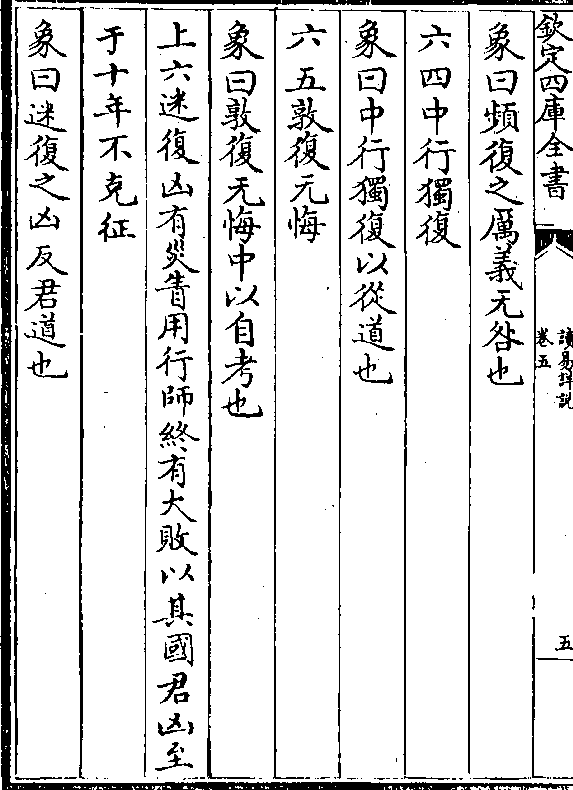 欽定四庫全書
讀易詳說
卷五
五
象曰頻復之厲義无咎也
六四中行獨復
象曰中行獨復以從道也
六五敦復无悔
象曰敦復无悔中以自考也
上六迷復凶有災眚用行師終有大敗以其國君凶至
于十年不克征
象曰迷復之凶反君道也